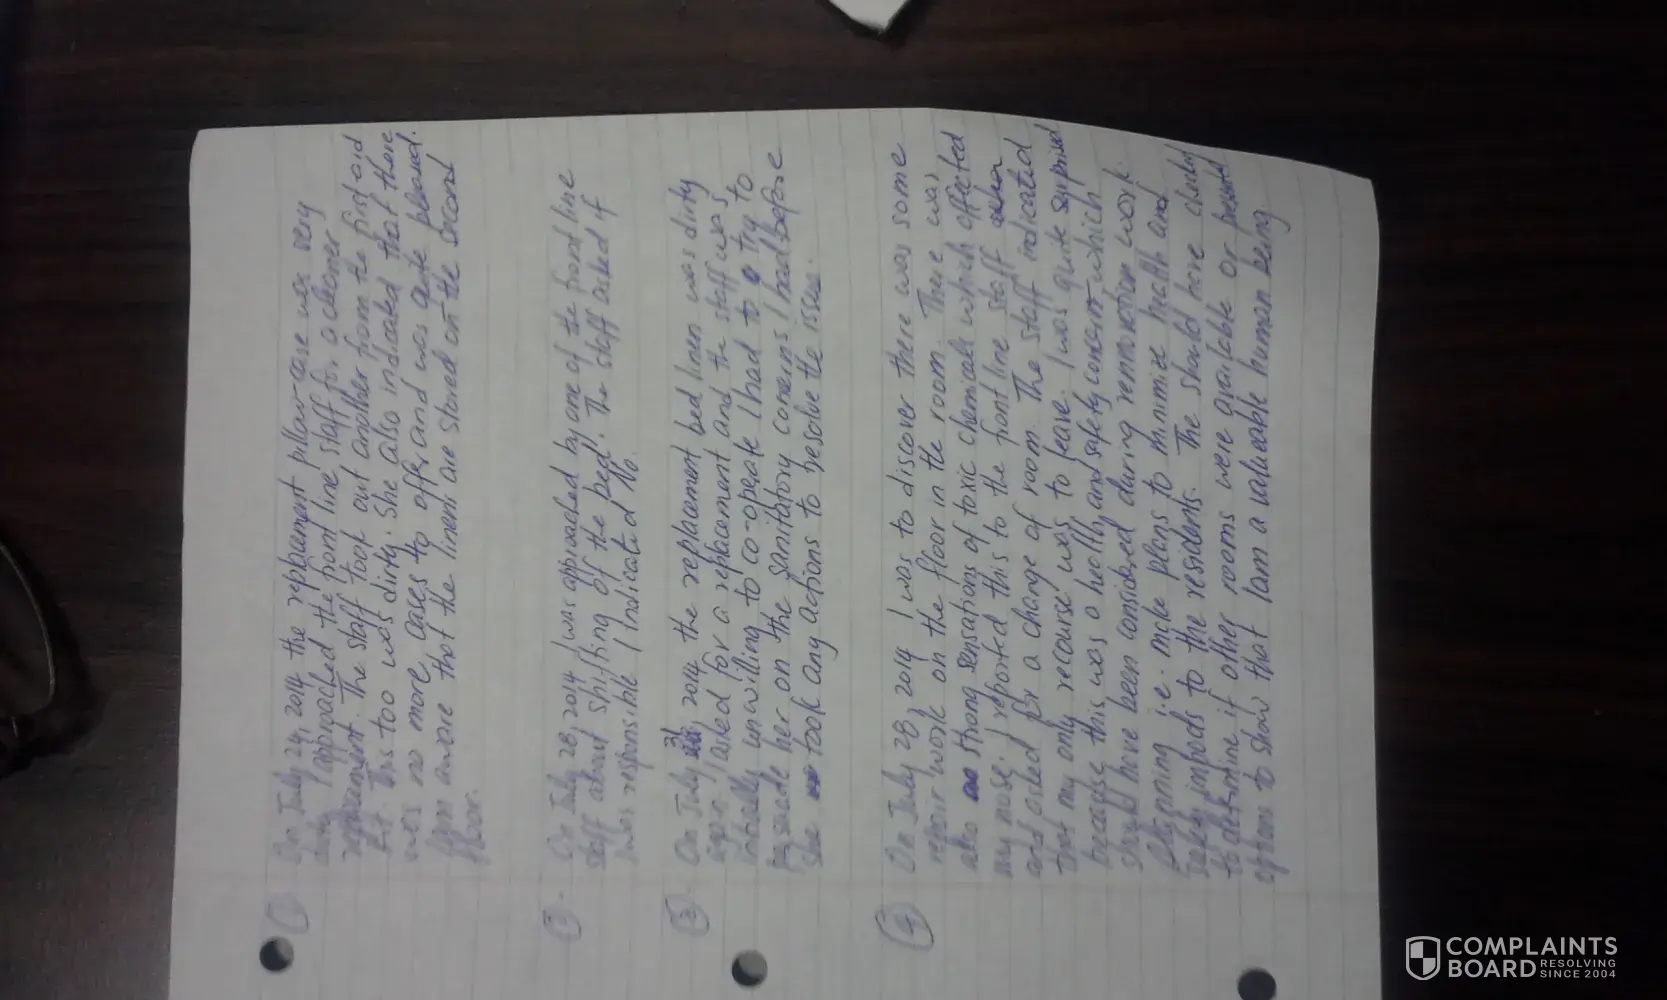 ① On July 24, 2014 the replacement pillow-case was very
dirty. I approached the front line staff for a cleaner
replacement. The staff took out another from the first aid
kit. This too was dirty. She also indicated that there
was no more cases to offer and was quite pleased.
I am aware that the linens are stored on the second
floor.
②. On July 28, 2014 I was approached by one of the front line
staff about shifting of the bed. The staff asked if
I was responsible I indicated No.
③. On July 31, 2014 the replacement bed linen was dirty
again. I asked for a replacement and the staff was
initially unwilling to co-operate I had to try to
persuade her on the sanitatory concerns I had before
she took any actions to resolve the issue.
④ On July 28, 2014 I was to discover there was some
repair work on the floor in the room. There was
also strong sensations of toxic chemicals which affected
my nose. I reported this to the front line staff
and asked for a change of room. The staff indicated
that my only recourse was to leave. I was quite suprised
because this was a health and safety concern which
should have been considered during rennovation work
planning i.e. make plans to minimize health and
safety impacts to the residents. The should have checked
to determine if other rooms were available or presented
options to show that I am a valueable human being.
COMPLAINTS
BOARD RESOLVING
SINCE 2004